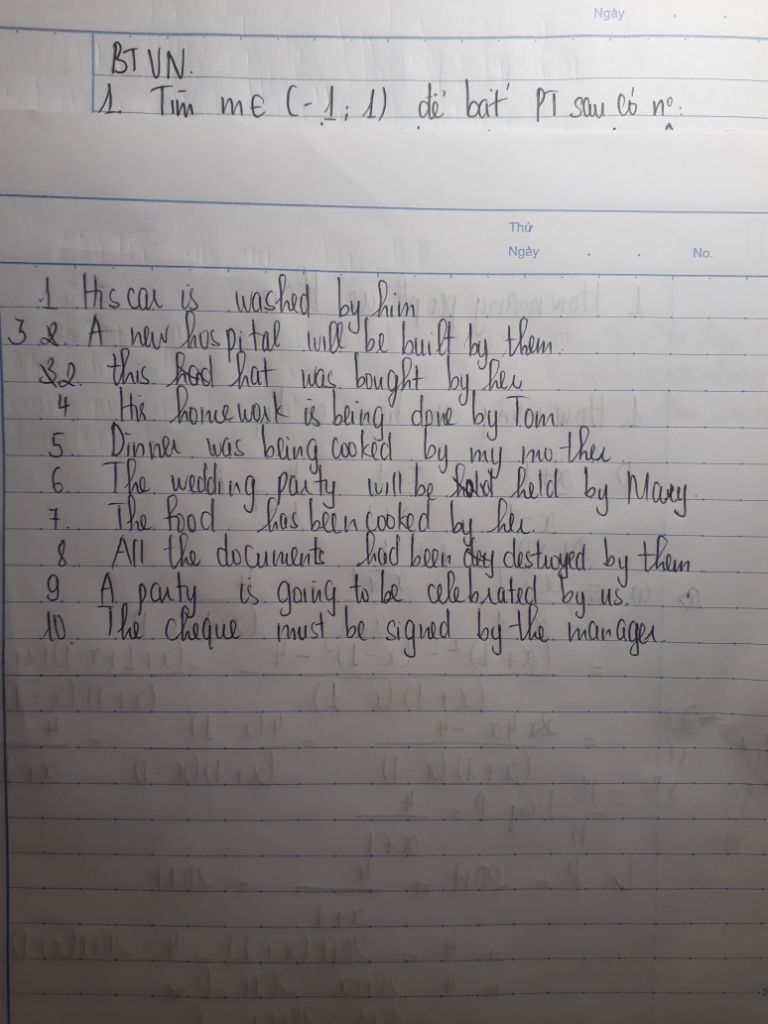 Ngày
BTVN.
1. Tìm m∈ (-1; 1) để bất PT sau có nº:
Thứ
Ngày No.
1 His car is washed by him
3 2. A new hospital will be built by them.
32. this had hat was bought by her
4 His homework is being done by Tom
5 Dinner was being cooked by my mother
6 The wedding party will be hold held by Mary.
7. The food has been cooked by her.
8 All the documents had been destroyed by them
9 A party is going to be celebrated by us.
10. The cheque must be signed by the manager.